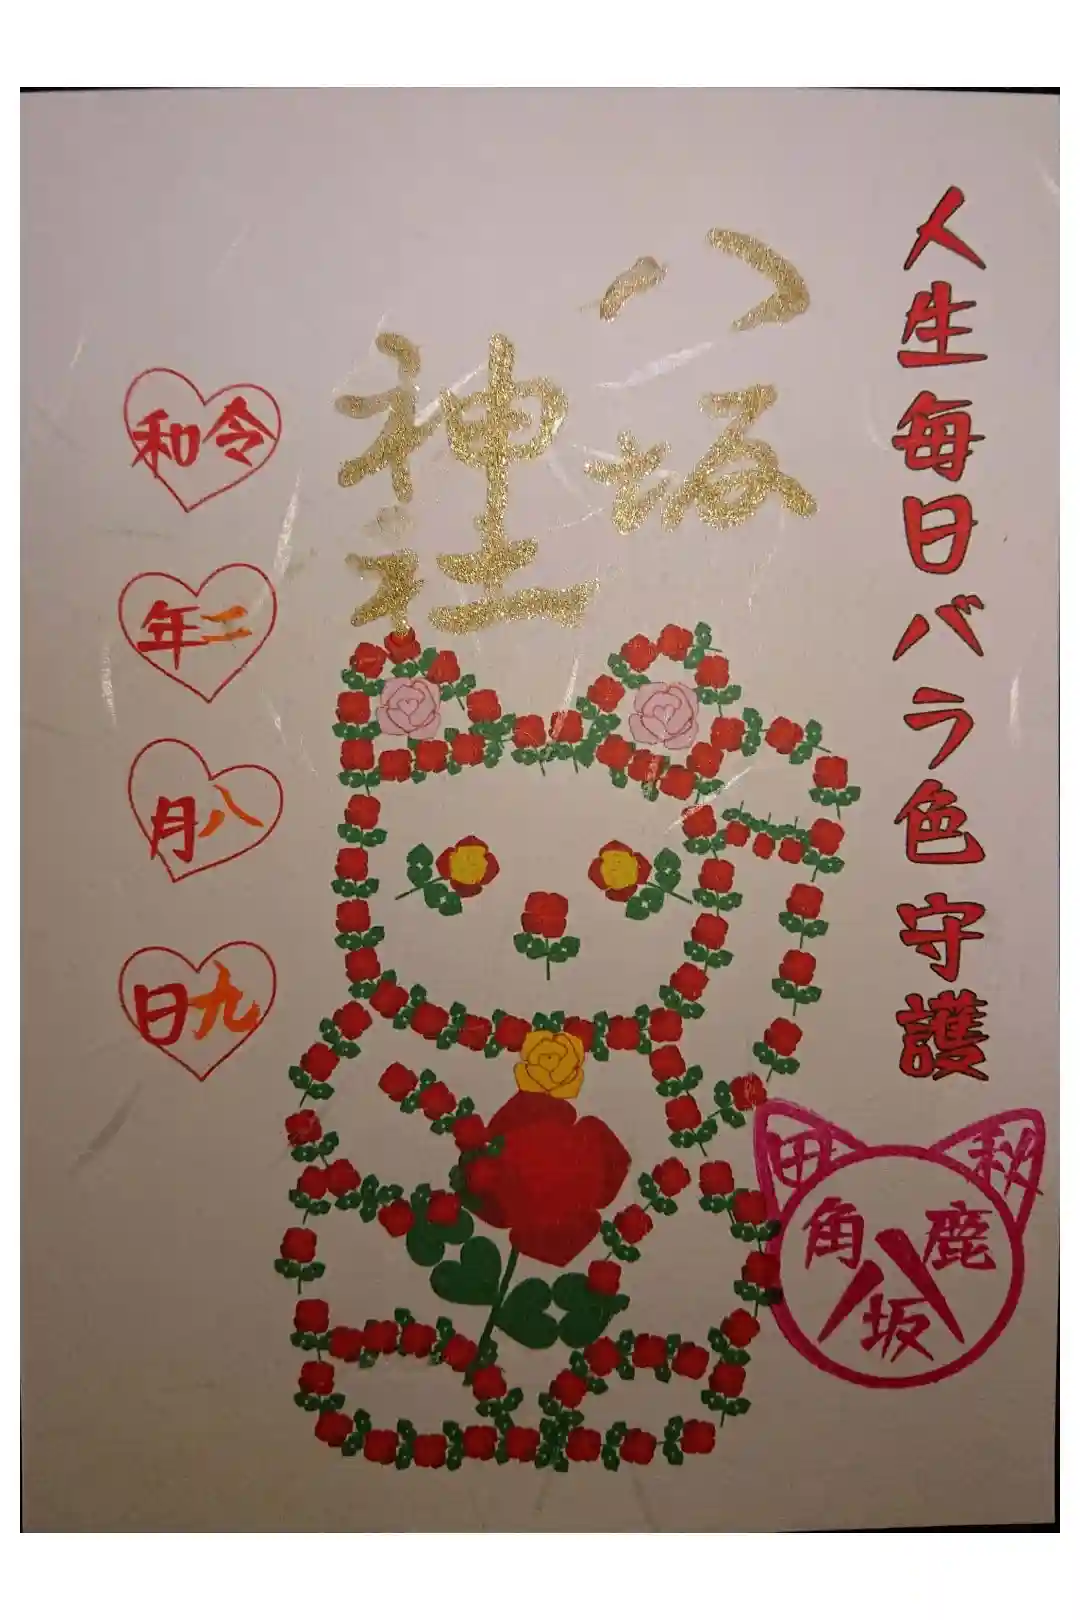 人生毎日バラ色守護
八坂
神社
令和
二年
八月
九日
秋田
鹿角
八坂